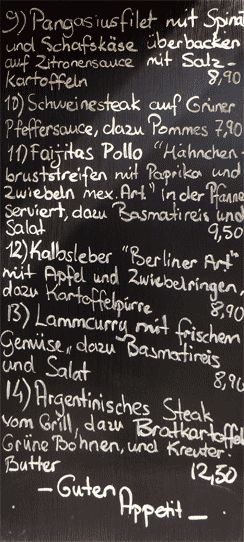 9) Pangasiusfilet mit Spinat
und Schafskäse überbacken
auf Zitronensauce mit Salz-
kartoffeln 8,90
10) Schweinesteak auf Grüner
Pfeffersauce, dazu Pommes 7,90
11) Faijitas Pollo "Hähnchen-
bruststreifen mit Paprika und
Zwiebeln mex. Art" in der Pfanne
serviert, dazu Basmatireis und
Salat 9,50
12) Kalbsleber "Berliner Art"
mit Apfel und Zwiebelringen,
dazu Kartoffelpürre 8,90
13) Lammcurry mit frischen
Gemüse, dazu Basmatireis
und Salat 8,90
14) Argentinisches Steak
vom Grill, dazu Bratkartoffel
Grüne Bohnen, und Kreuter
Butter 12,50
- Guten
Appetit -